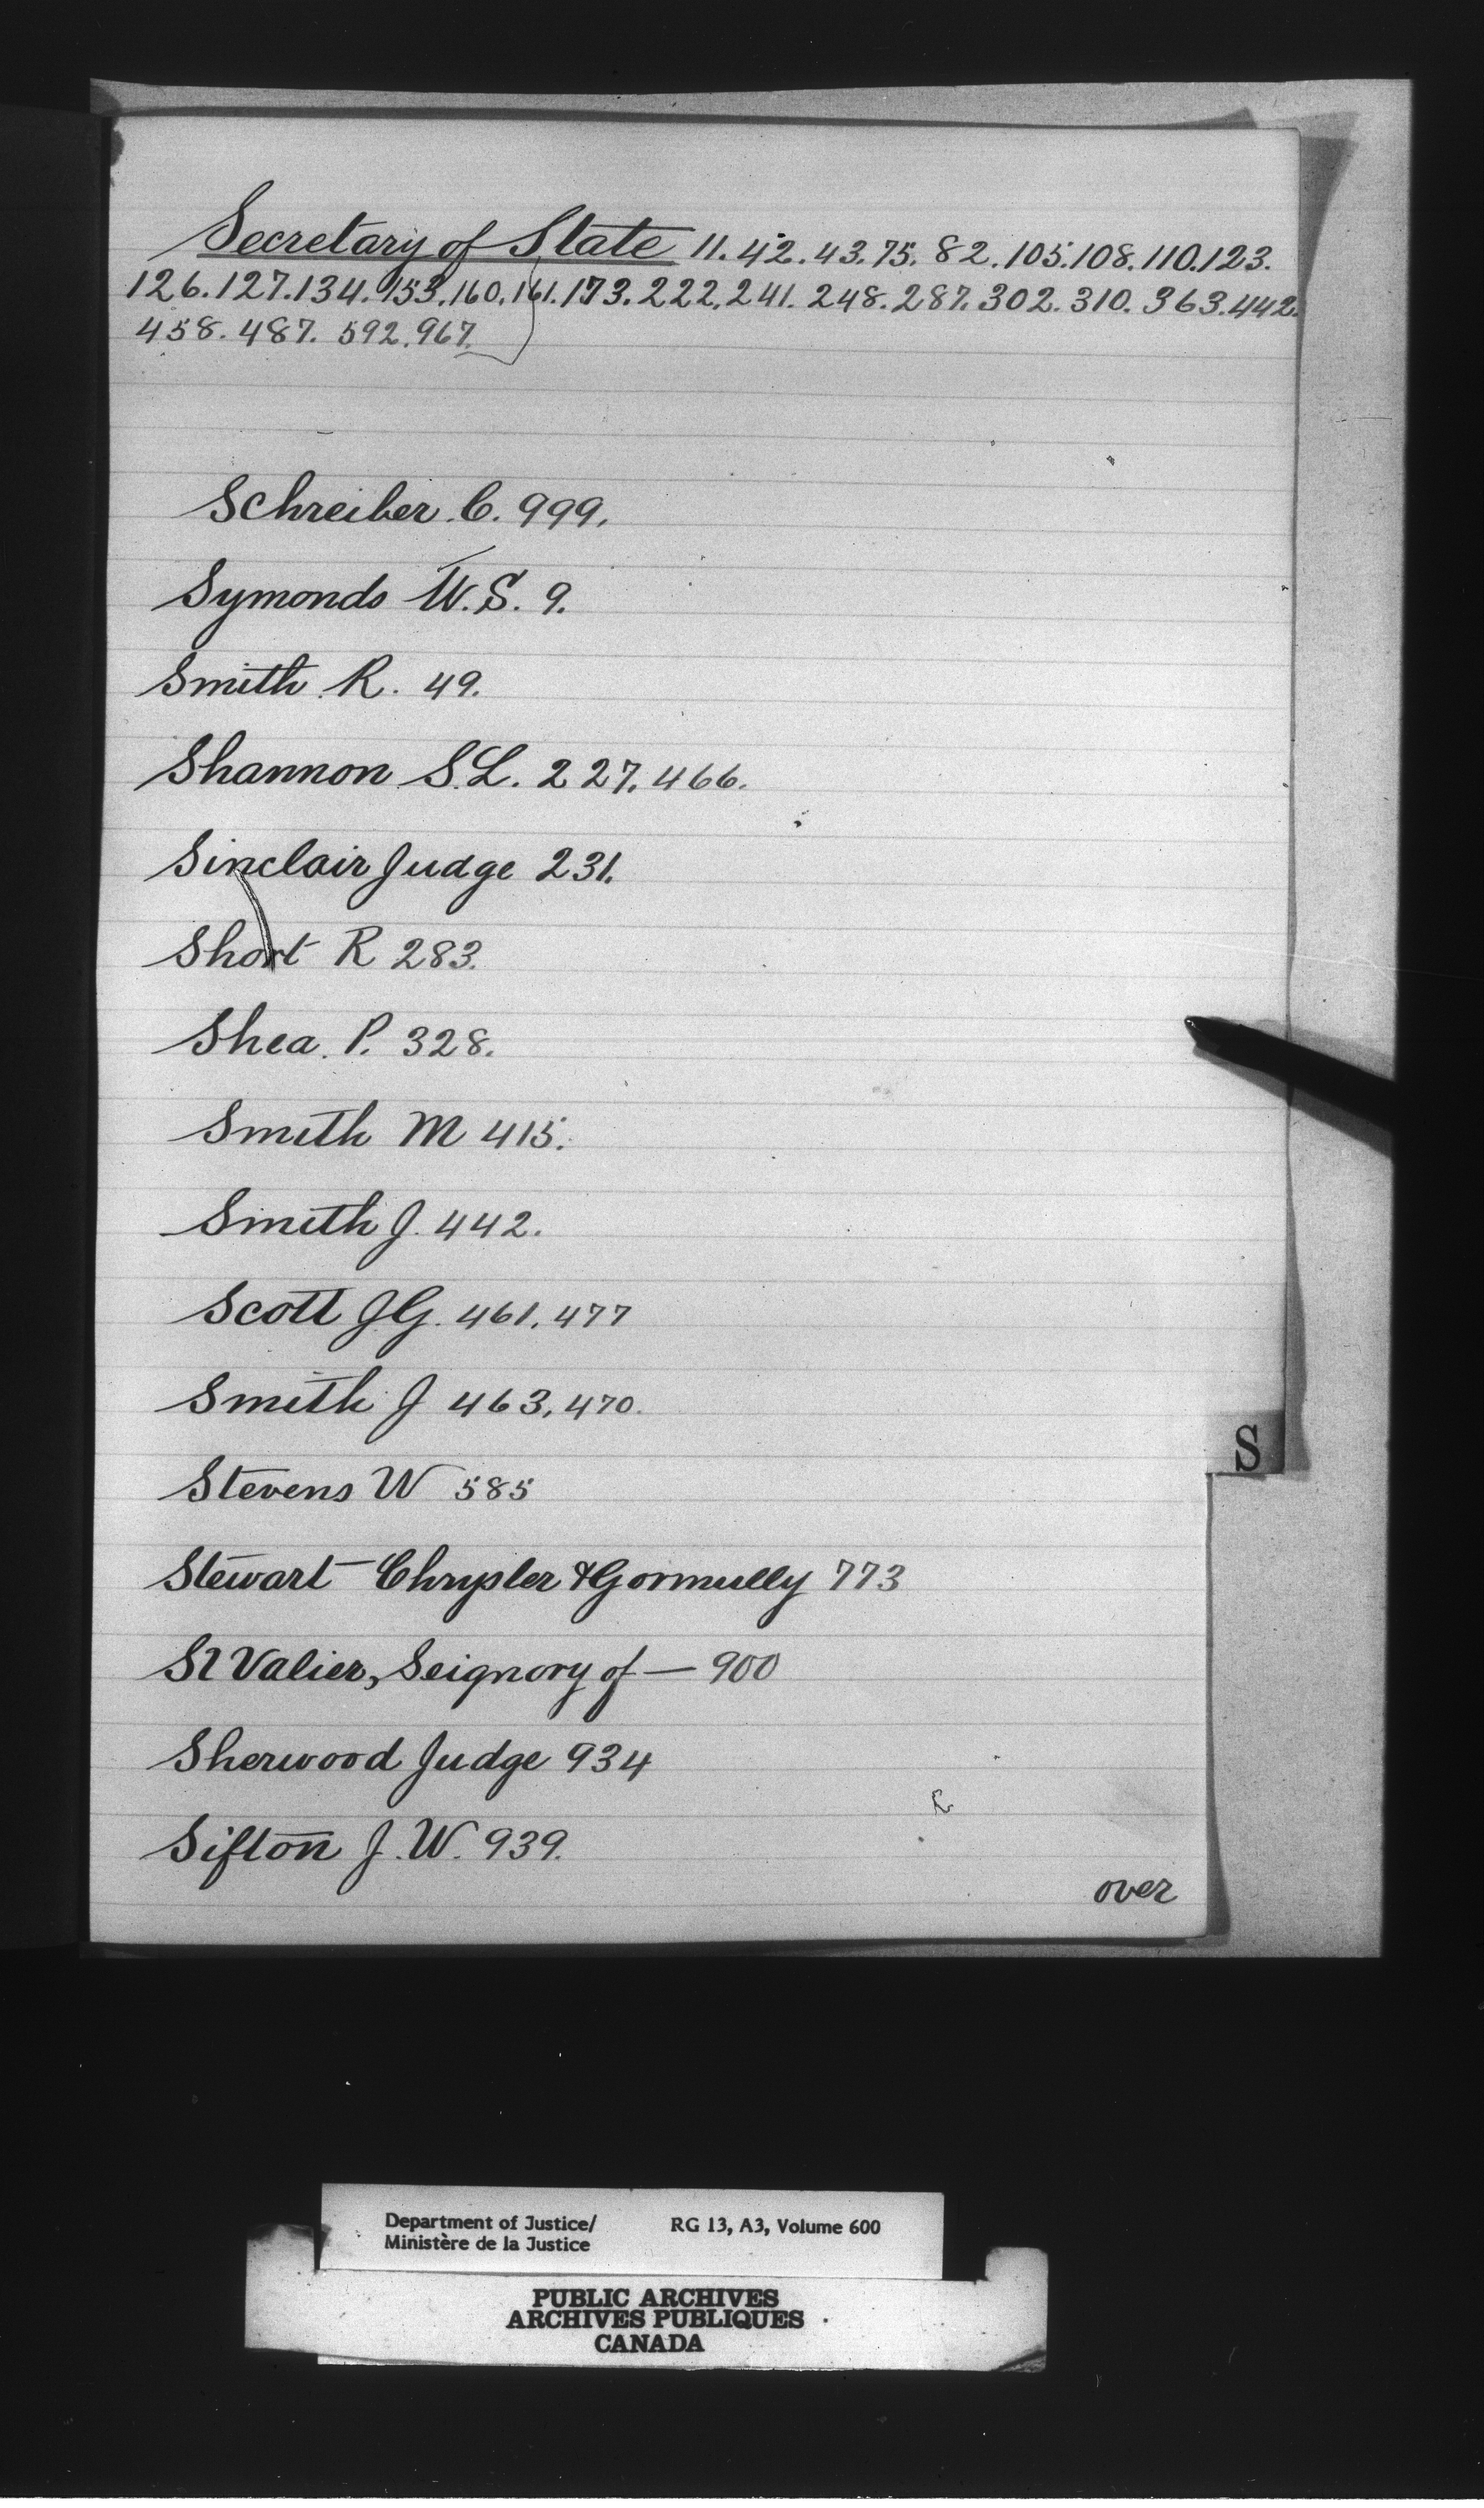 Secretary of State 11. 42. 43. 75. 82. 105. 108. 110. 123.
126. 127. 134. 153. 160. 161. 173. 222. 241. 248. 287. 302. 310. 363. 442.
458. 487. 592. 967.
Schreiber. C. 999.
Symonds W. S. 9.
Smith. R. 49.
Shannon S. L. 227. 466.
Sinclair Judge 231.
Short R 283.
Shea. P. 328.
Smith M 415.
Smith J. 442.
Scott J.G. 461. 477
Smith J 463. 470.
Stevens W 585
Stewart Chrysler & Gormully 773
St Valier, Seignory of — 900
Sherwood Judge 934
Sifton J. W. 939.
over
S
Department of Justice/ RG 13, A3, Volume 600
Ministère de la Justice
PUBLIC ARCHIVES
ARCHIVES PUBLIQUES
CANADA